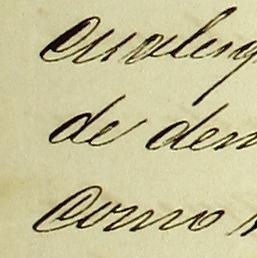 cualeſq
de den
como